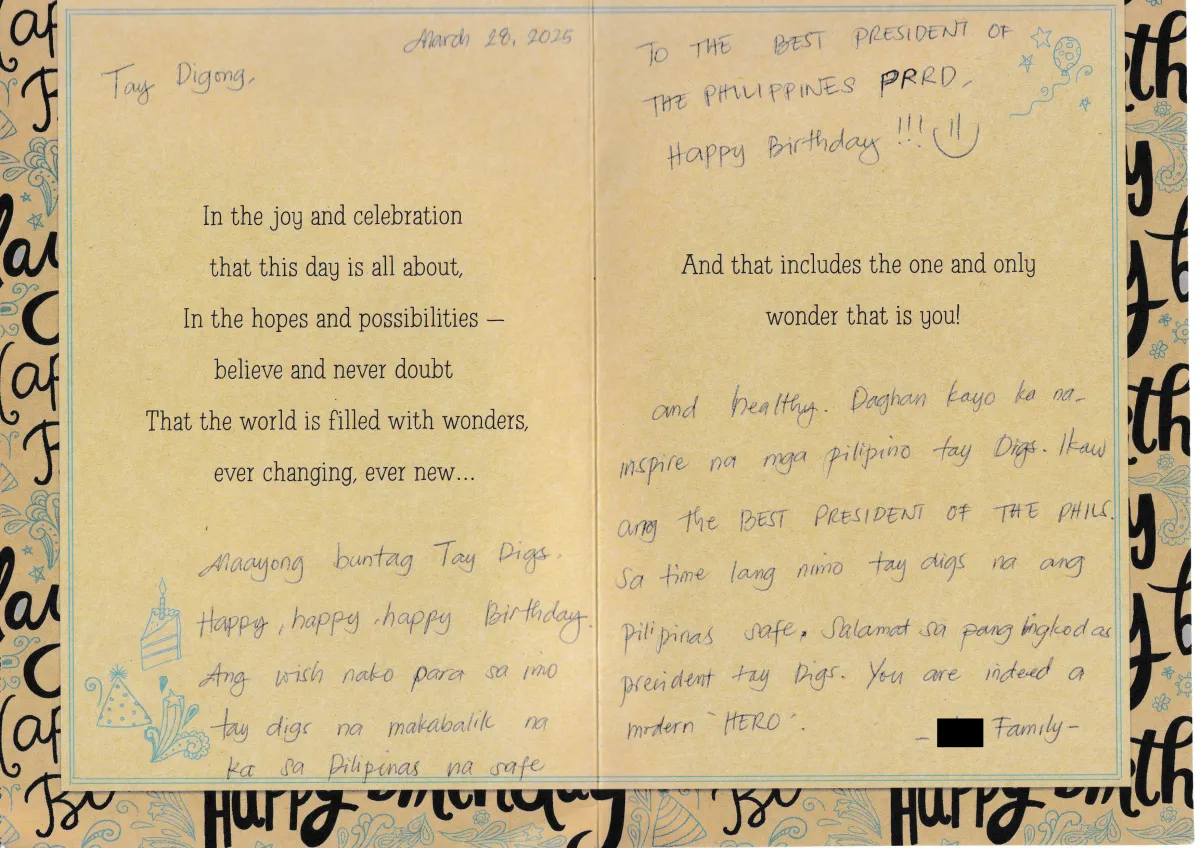 March 28, 2025
Tay Digong,
In the joy and celebration
that this day is all about,
In the hopes and possibilities —
believe and never doubt
That the world is filled with wonders,
ever changing, ever new...
Maayong buntag Tay Digs.
Happy, happy, happy Birthday.
Ang wish nako para sa imo
tay digs na makabalik na
ka sa Pilipinas na safe
TO THE BEST PRESIDENT OF
THE PHILIPPINES PRRD,
Happy Birthday !!!
And that includes the one and only
wonder that is you!
and healthy. Daghan kayo ka na-
inspire na mga pilipino tay Digs. Ikaw
ang the BEST PRESIDENT OF THE PHILS.
Sa time lang nimo tay digs na ang
pilipinas safe. Salamat sa pang ingkod as
president tay Digs. You are indeed a
modern "HERO".
- Family -